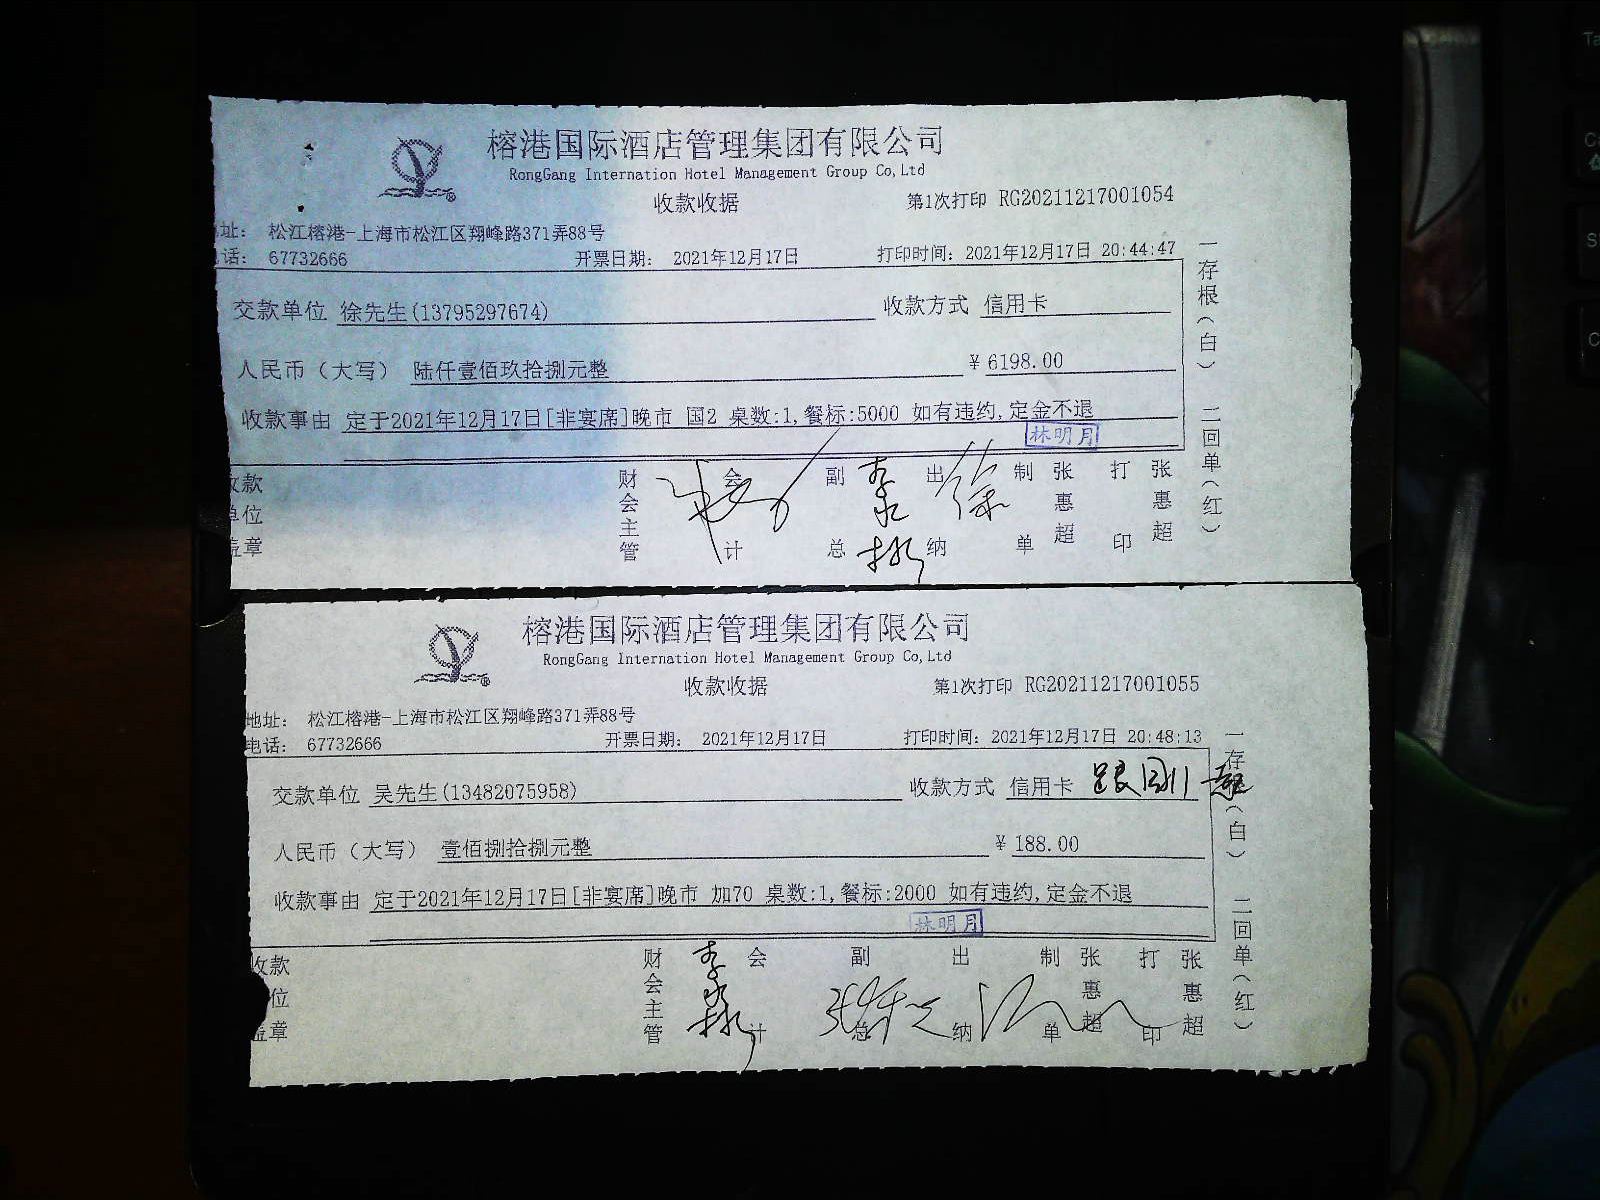 榕港国际酒店管理集团有限公司
RongGang Internation Hotel Management Group Co,Ltd
收款收据 第1次打印 RG20211217001054
址： 松江榕港-上海市松江区翔峰路371弄88号
话： 67732666 开票日期： 2021年12月17日 打印时间：2021年12月17日 20:44:47
交款单位 徐先生(13795297674) 收款方式 信用卡
人民币（大写） 陆仟壹佰玖拾捌元整 ¥6198.00
收款事由 定于2021年12月17日[非宴席]晚市 国2 桌数:1,餐标:5000 如有违约,定金不退
林明月
收款单位盖章 财会主管 会计 副总 出纳 徐 制单 张惠超 打印 张惠超
一存根（白） 二回单（红）
榕港国际酒店管理集团有限公司
RongGang Internation Hotel Management Group Co,Ltd
收款收据 第1次打印 RG20211217001055
地址： 松江榕港-上海市松江区翔峰路371弄88号
电话： 67732666 开票日期： 2021年12月17日 打印时间：2021年12月17日 20:48:13
交款单位 吴先生(13482075958) 收款方式 信用卡
人民币（大写） 壹佰捌拾捌元整 ¥188.00
收款事由 定于2021年12月17日[非宴席]晚市 加70 桌数:1,餐标:2000 如有违约,定金不退
林明月
收款单位盖章 财会主管 会计 副总 出纳 制单 张惠超 打印 张惠超
一存根（白） 二回单（红）